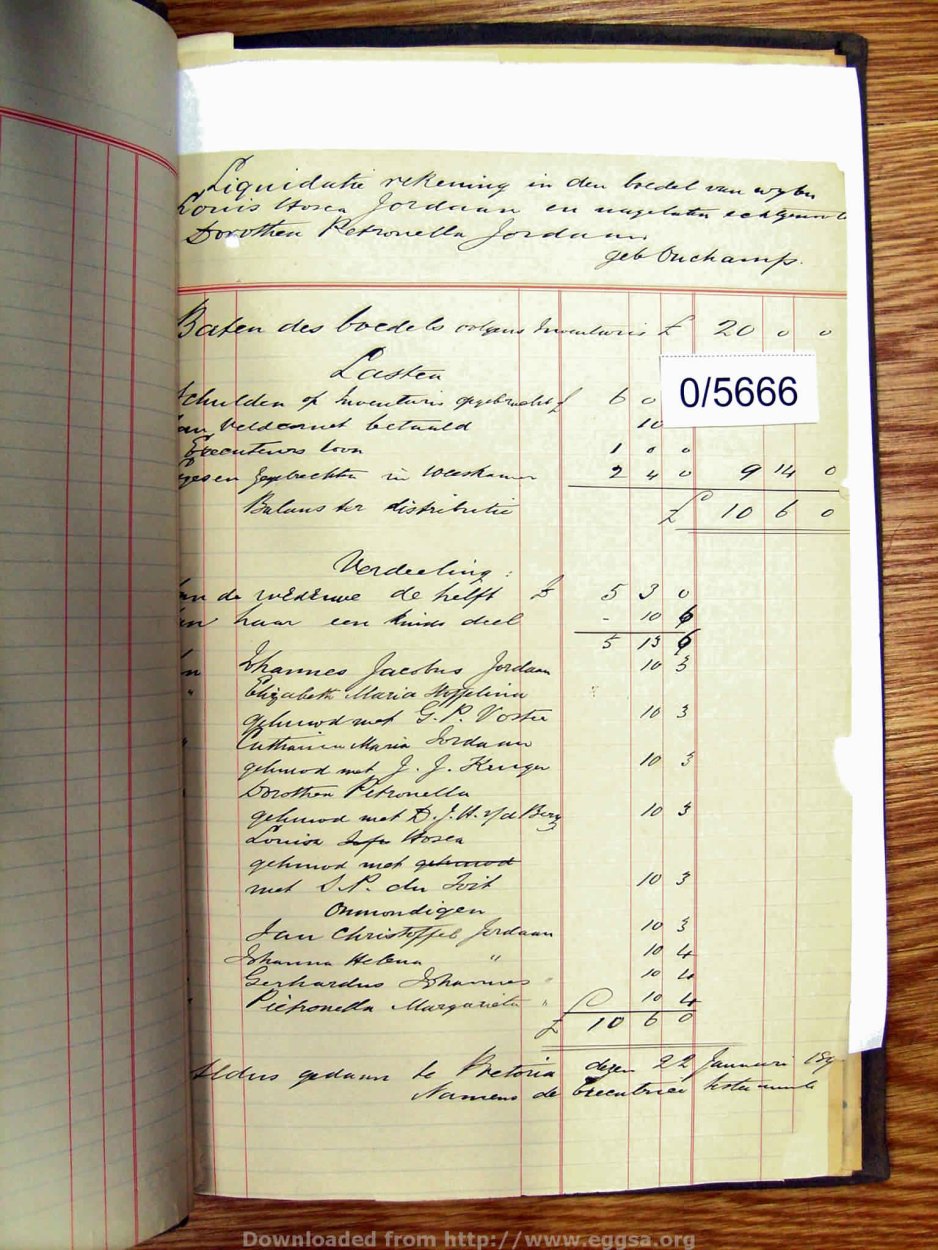 Liquidatie rekening in den boedel van wylen
Louis Hosea Jordaan en nagelaten echtgenoote
Dorothea Petronella Jordaan
geb Duchamps.
Baten des boedels volgens Inventaris £ 20 0 0
Lasten
Schulden op Inventaris opgebracht £ 6 0
0/5666
aan Veldcornet betaald 10
Executeurs loon 1 0 0
in Weeskamer 2 4 0 9 14 0
Balans ter distributie £ 10 6 0
Verdeeling:
aan de weduwe de helft £ 5 3 0
aan haar een kinds deel - 10 6
5 13 6
Johannes Jacobus Jordaan 10 3
" Elizabeth Maria
gehuwd met G. P. Vorster 10 3
" Catharina Maria Jordaan
gehuwd met J. J. Kruger 10 3
Dorothea Petronella
gehuwd met D. J. H. v/d Berg 10 3
Louisa Hosea
gehuwd met gehuwd
met S. P. du Toit 10 3
Onmondigen
Jan Christoffel Jordaan 10 3
Johanna Helena " 10 4
Gerhardus Johannes " 10 4
Pietronella Margarieta " 10 4
£ 10 6 0
Aldus gedaan te Pretoria dezen 22 Januari 189
Namens de Executrice testamentr
Downloaded from http://www.eggsa.org